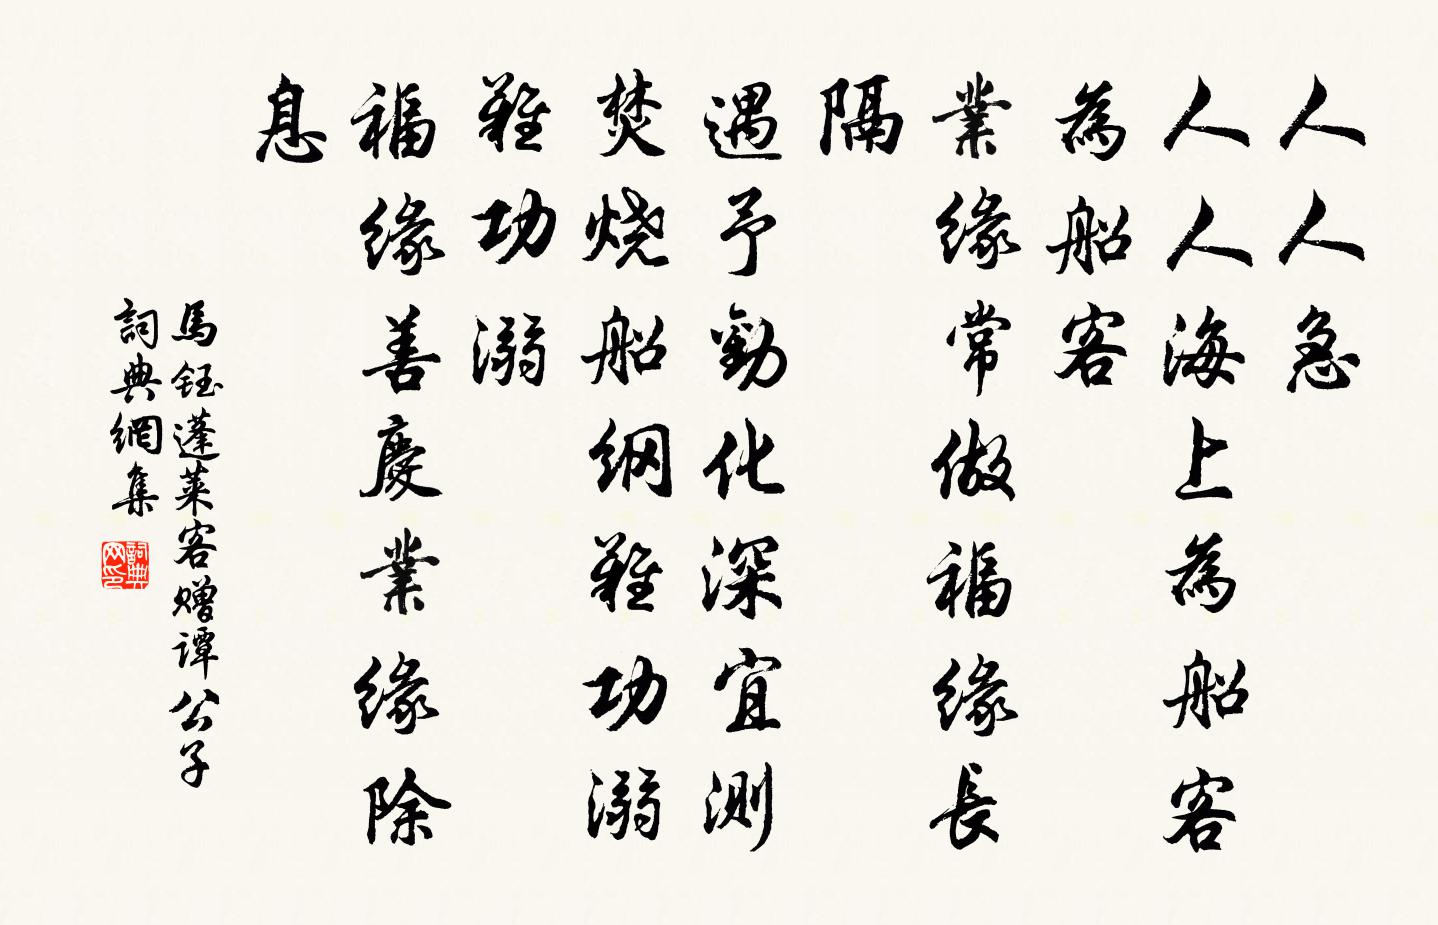 人人急
人人海上為船客
為船客
業緣常做福緣長
隔
遇予勸化深宜測
焚烧船纲難功溺
難功溺
福緣善慶業緣除
息
馬鈺蓬莱客赠谭公子
詞典網集
詞典
网印